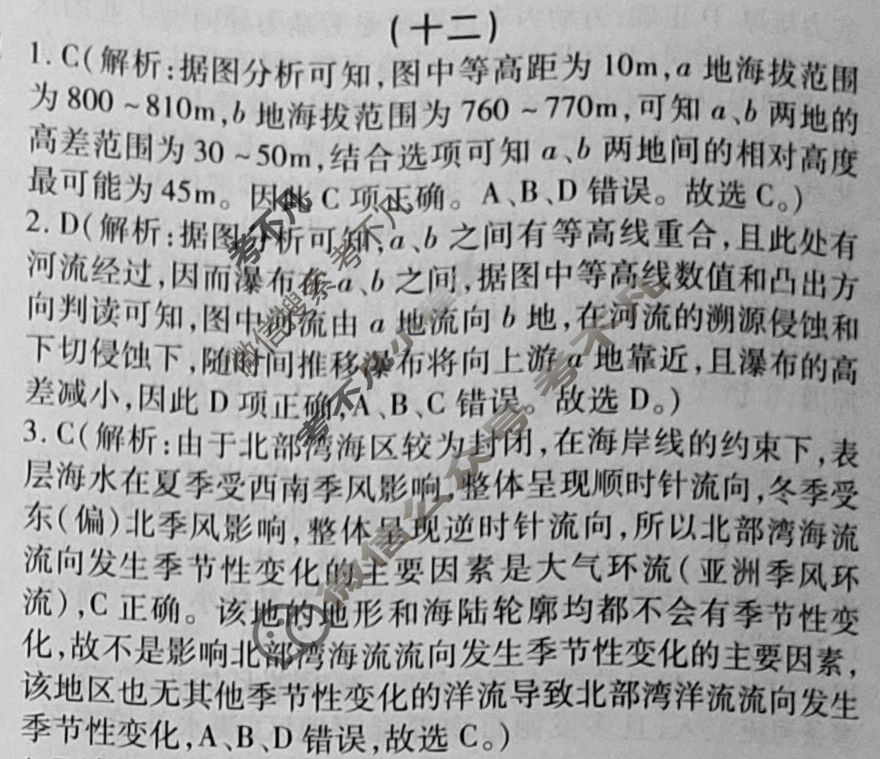 (十二)
1. C(解析:据图分析可知,图中等高距为 10m,a 地海拔范围
为 800 ~ 810m,b 地海拔范围为 760 ~ 770m,可知 a、b 两地的
高差范围为 30 ~ 50m,结合选项可知 a、b 两地间的相对高度
最可能为 45m。因此 C 项正确。A、B、D 错误。故选 C。)
2. D(解析:据图分析可知,a、b 之间有等高线重合,且此处有
河流经过,因而瀑布在 a、b 之间,据图中等高线数值和凸出方
向判读可知,图中河流由 a 地流向 b 地,在河流的溯源侵蚀和
下切侵蚀下,随时间推移瀑布将向上游 a 地靠近,且瀑布的高
差减小,因此 D 项正确,A、B、C 错误。故选 D。)
3. C(解析:由于北部湾海区较为封闭,在海岸线的约束下,表
层海水在夏季受西南季风影响,整体呈现顺时针流向,冬季受
东(偏)北季风影响,整体呈现逆时针流向,所以北部湾海流
流向发生季节性变化的主要因素是大气环流(亚洲季风环
流),C 正确。该地的地形和海陆轮廓均都不会有季节性变
化,故不是影响北部湾海流流向发生季节性变化的主要因素,
该地区也无其他季节性变化的洋流导致北部湾洋流流向发生
季节性变化,A、B、D 错误,故选 C。)
考不凡
微信搜索 考不凡
考不凡
微信公众号 考不凡